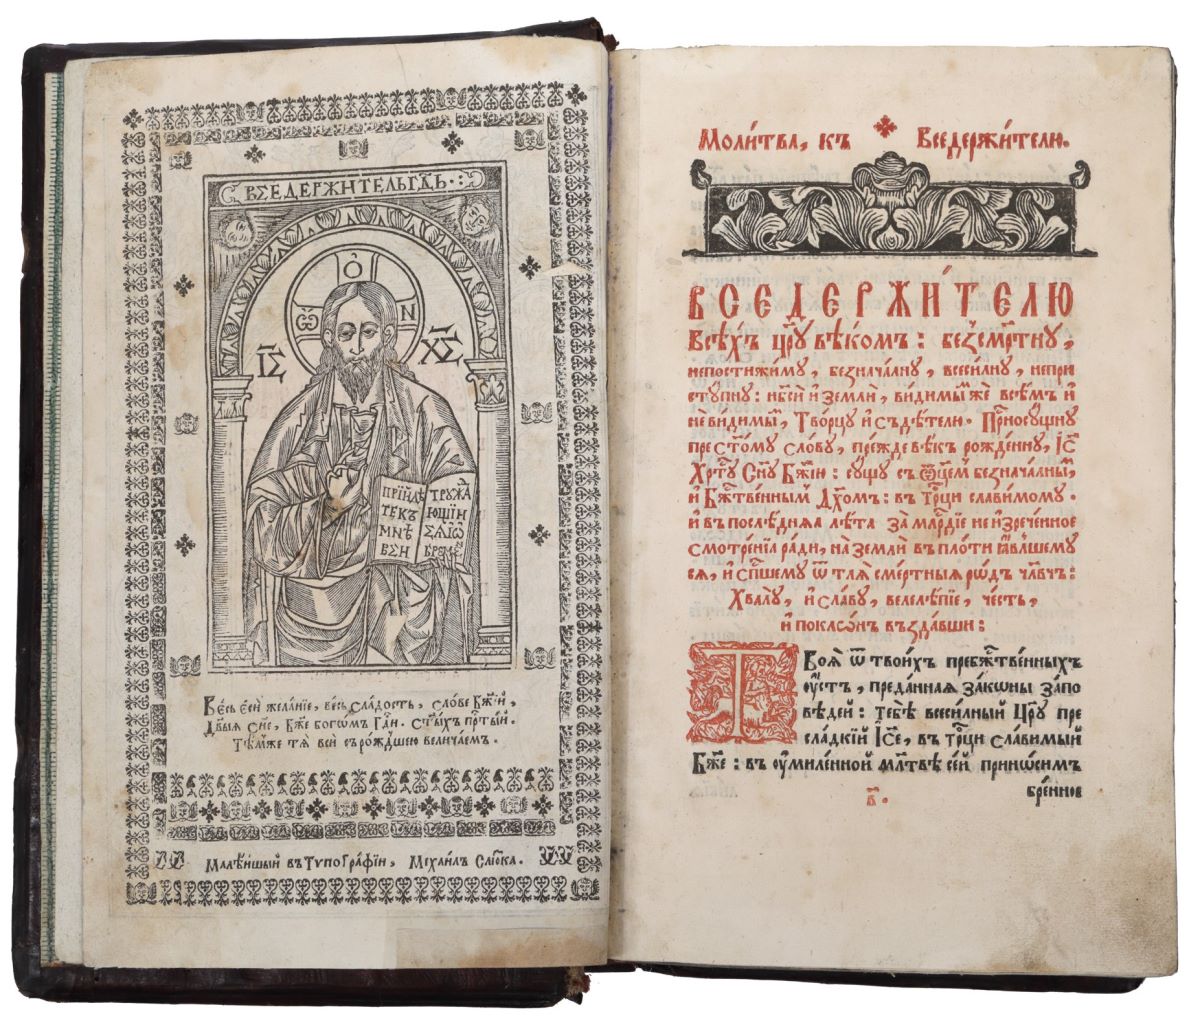 ВСЕДЕРЖИТЕЛЬ Гдⷭ҇Ь
Ѽ О Н
І҆С Х҃С
ПРІИДѢ ТЕ К̾ МНѢ ВСИ
ТРУЖА ЮЩІИ СѦ И Ѡ БРЕМЕ
Весь є҆сѝ желанїе, весь сладость, слове Бж҃їй,
Тѣмже тѧ всѝ съ рождшею величаемъ.
Малѣйшый въ Типографїи, Михаилъ Слюска.
Моли́тва, къ Вседержи́телю.
ВСЕДЕРЖИ́ТЕЛЮ
Всѣхъ Цр҃ю вѣкомъ: безсме́ртну,
непостижи́му, безнача́лну, всеси́лну, непри
сту́пну: нб҃си и҆ землѝ, ви́димымже всѣмъ и҆
неви́димымъ, Творцу̀ и҆ съдѣ́телю. Присносу́щну
прест҃ому сло́ву, пре́жде вѣкъ рожде́нну, І҆с҃
Хрⷭ҇ту Сн҃у Бж҃їю: су́щу съ Ѿц҃емъ безнача́лнымъ,
и҆ Бжⷭ҇твеннымъ Дх҃омъ: въ Трⷪ҇ци сла́вимому.
и҆ въ послѣ́днѧѧ лѣ́та за млⷭ҇рдїе неизрече́нное
смотре́нїѧ ра́ди, на землѝ въ пло́ти ꙗ҆́вльшемусѧ
сѧ, и҆ сп҃шему ѿ тлѧ̀ сме́ртныѧ ро́дъ чл҃вчъ:
Хвалу̀, и҆ сла́ву, велелѣ́пїе, че́сть,
и҆ покло́нъ въздавши:
Твоѧ̀ ѿ твои́хъ пребжⷭ҇твенныхъ
оу҆́стъ, пре́данная зако́ны запо
вѣ́дей: тебѣ̀ всеси́лный Цр҃ю пре
сла́дкїй І҆с҃е, въ Трⷪ҇ци сла́вимый
Бж҃е: въ оу҆миле́нной мл҃твѣ се́й прино́симъ
бре́ннов
в҃.